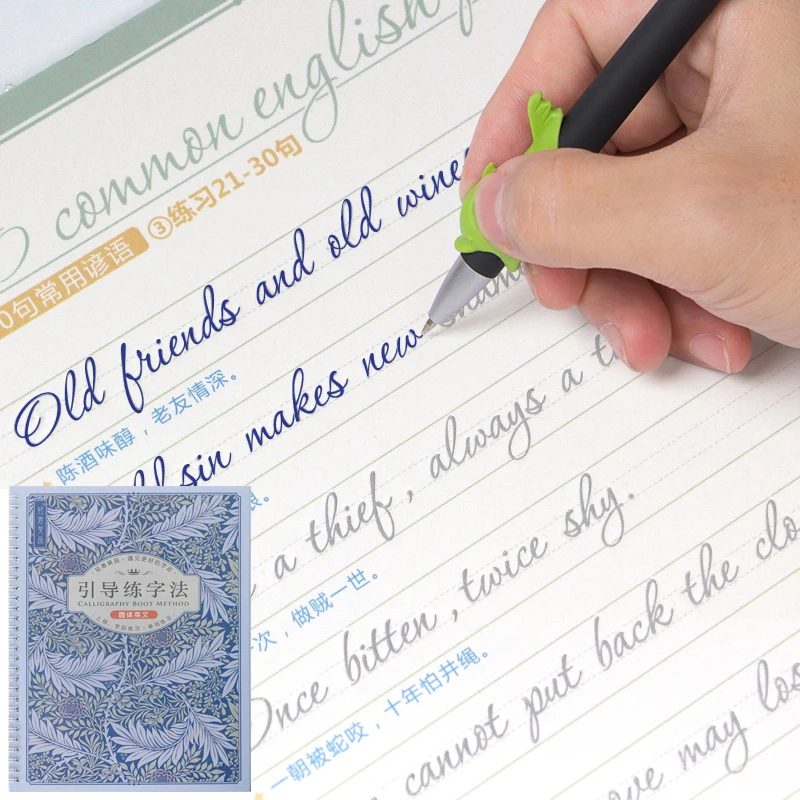 common english
0句常用谚语 ③练习21-30句
Old friends and old wines
陈酒味醇，老友情深。
sin makes new
a thief, always a
次，做贼一世。
Once bitten, twice shy.
一朝被蛇咬，十年怕井绳。
cannot put back the clo
may los
引导练字法
CALLIGRAPHY BOOT METHOD
圆体英文